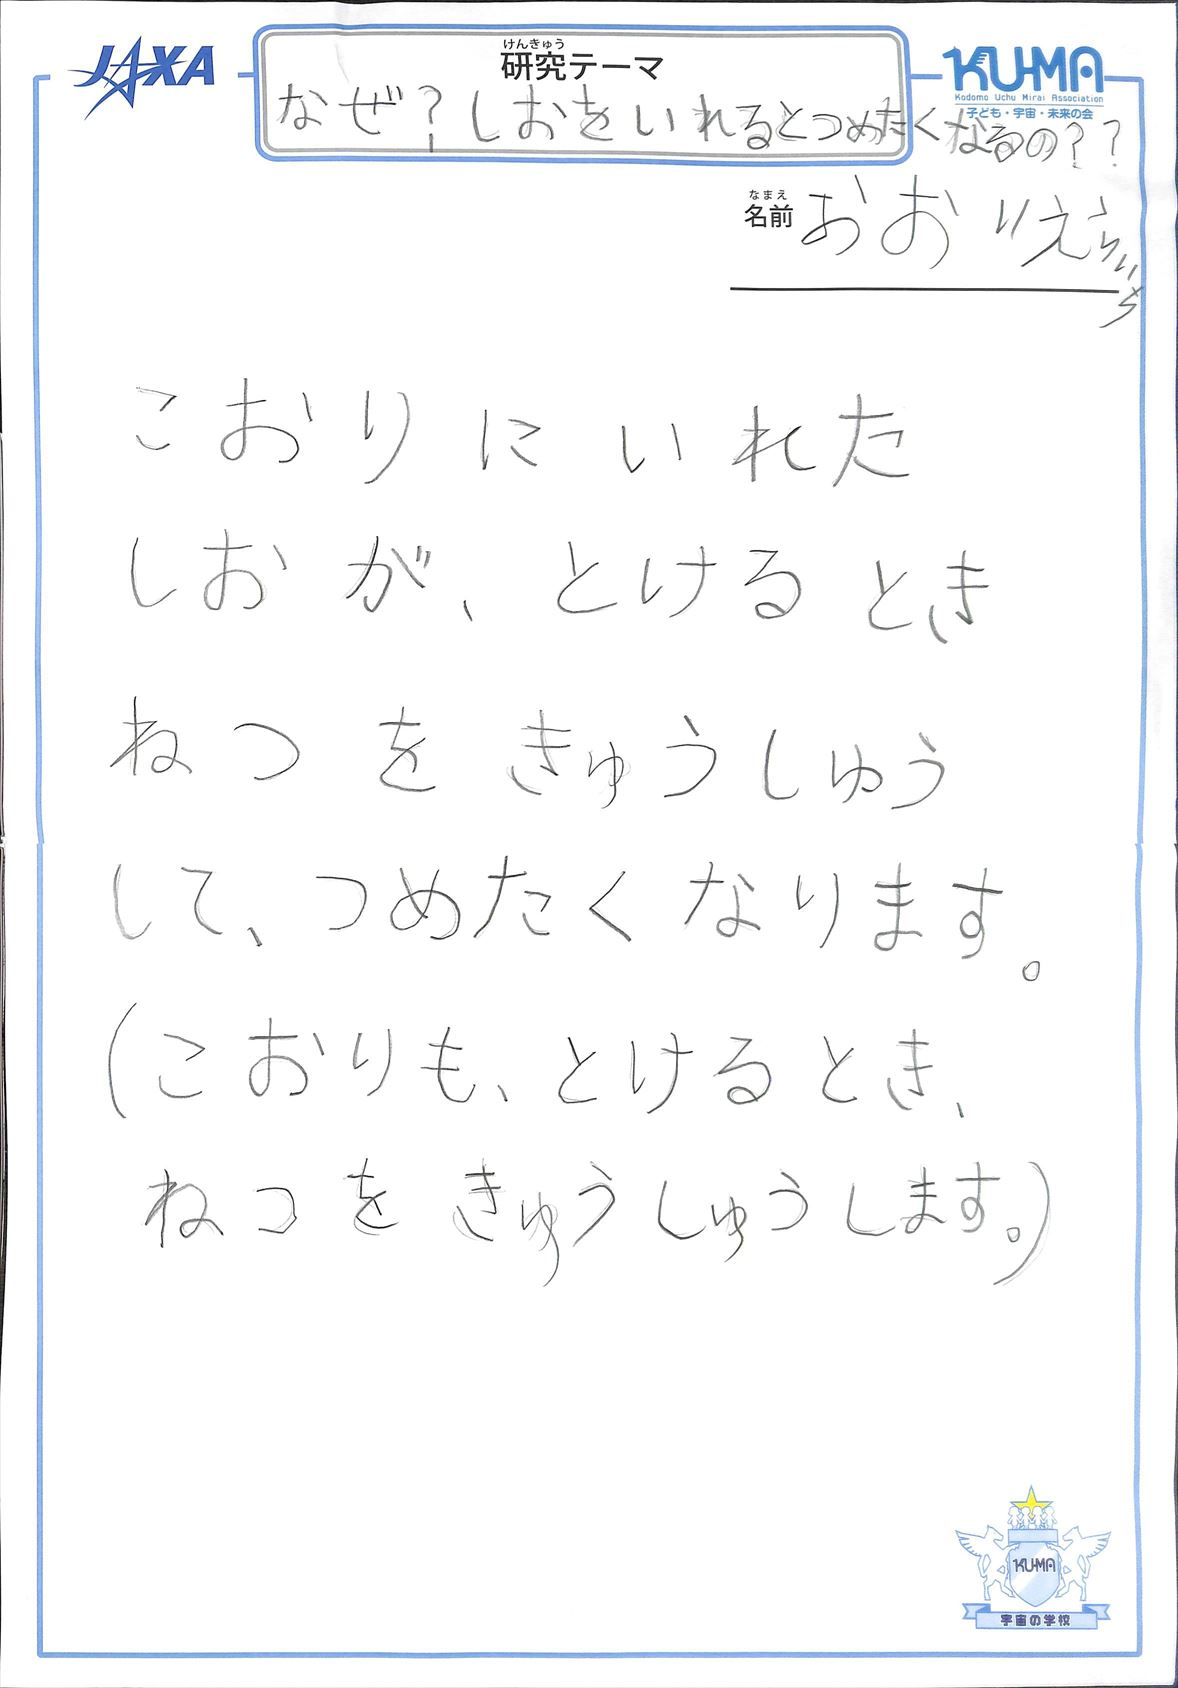 JAXA
けんきゅう
研究テーマ
KU-MA
Kodomo Uchu Mirai Association
子ども・宇宙・未来の会
なぜ?しおをいれるとつめたくなるの??
なまえ
名前
こおりにいれた
しおが、とけるとき
ねつをきゅうしゅう
して、つめたくなります。
(こおりも、とけるとき、
ねつをきゅうしゅうします。)
KU-MA
宇宙の学校